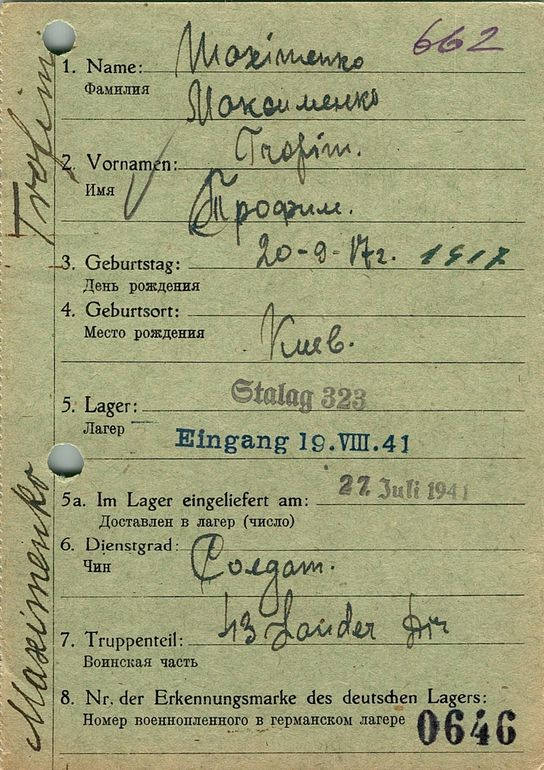 662
1. Name: Maximenko
Фамилия
Максименко
2. Vornamen: Trofim.
Имя
Трофим.
3. Geburtstag: 20-9-17г. 1917
День рождения
4. Geburtsort:
Место рождения Киев.
Stalag 323
5. Lager:
Лагер
Eingang 19.VIII.41
27. Juli 1941
5a. Im Lager eingeliefert am:
Доставлен в лагер (число)
6. Dienstgrad:
Чин Солдат.
7. Truppenteil: 43
Воинская часть
8. Nr. der Erkennungsmarke des deutschen Lagers:
Номер военнопленного в германском лагере 0646
Maximenko Trofim